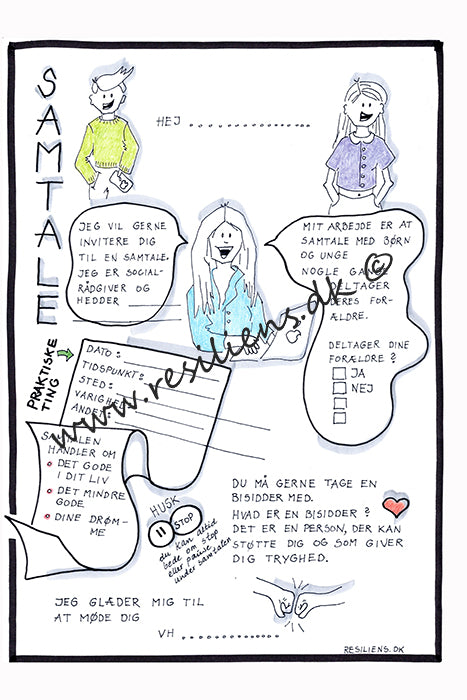 SAMTALE
HEJ ....................
JEG VIL GERNE
INVITERE DIG
TIL EN SAMTALE.
JEG ER SOCIAL-
RÅDGIVER OG
HEDDER
MIT ARBEJDE ER AT
SAMTALE MED BØRN
OG UNGE
NOGLE GANGE
DELTAGER
DERES FOR-
ÆLDRE.
DELTAGER DINE
FORÆLDRE ?
JA
NEJ
PRAKTISKE
TING
DATO :
TIDSPUNKT :
STED :
VARIGHED
ANDET :
SAMTALEN
HANDLER OM
DET GODE
I DIT LIV
DET MINDRE
GODE
DINE DRØM-
ME
HUSK
STOP
du kan altid
bede om stop
eller pause
under samtalen
DU MÅ GERNE TAGE EN
BISIDDER MED.
HVAD ER EN BISIDDER ?
DET ER EN PERSON, DER KAN
STØTTE DIG OG SOM GIVER
DIG TRYGHED.
JEG GLÆDER MIG TIL
AT MØDE DIG
VH ....................
RESILIENS.DK
www.resiliens.dk ©